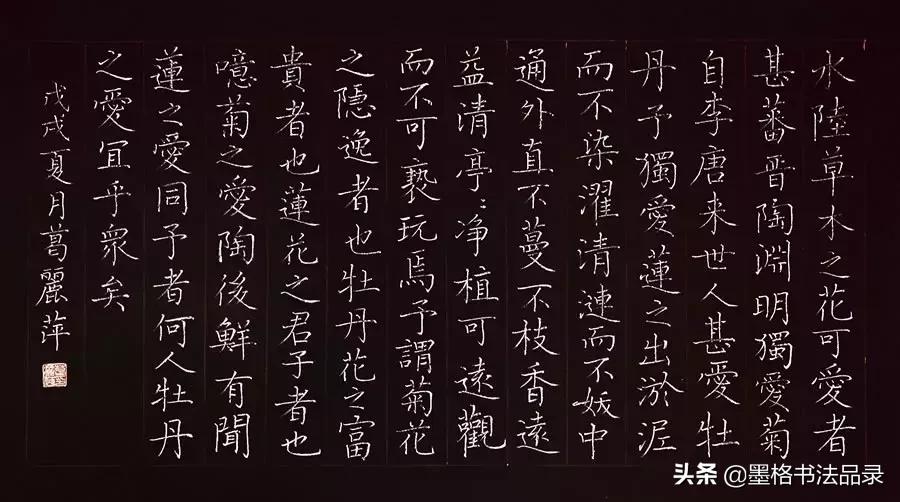 水陸草木之花可愛者
甚蕃晉陶淵明獨愛菊
自李唐来世人甚愛牡
丹予獨愛蓮之出淤泥
而不染濯清漣而不妖中
通外直不蔓不枝香遠
益清亭〻净植可遠觀
而不可褻玩焉予謂菊花
之隱逸者也牡丹花之富
貴者也蓮花之君子者也
噫菊之愛陶後鮮有聞
蓮之愛同予者何人牡丹
之愛宜乎衆矣
戊戌夏月葛麗萍
头条@墨格书法品录